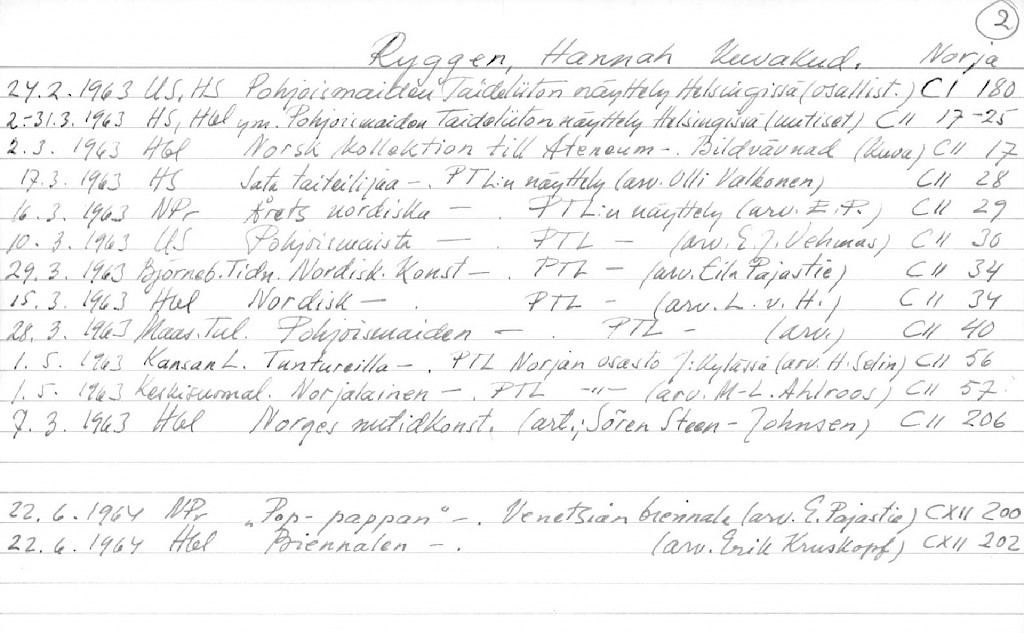 2
Ryggen, Hannah Kuvakud. Norja
24.2.1963 US, HS Pohjoismaiden Taideliiton näyttely Helsingissä (osallist.) CI 180
2.-31.3.1963 HS, Hbl ym. Pohjoismaiden Taideliiton näyttely Helsingissä (uutiset) CII 17-25
2.3.1963 Hbl Norsk kollektion till Ateneum -. Bildvävnad (kuva) CII 17
17.3.1963 HS Sata taiteilijaa -. PTL:n näyttely (arv. Olli Valkonen) CII 28
16.3.1963 NPr Årets nordiska - . PTL:n näyttely (arv. E.P.) CII 29
10.3.1963 US Pohjoismaista - . PTL - (arv. E.J. Vehmas) CII 30
29.3.1963 Björneb. Tidn. Nordisk. Konst - . PTL - (arv. Eila Pajastie) CII 34
15.3.1963 Hbl Nordisk - . PTL - (arv. L.v.H.) CII 34
28.3.1963 Maas. Tul. Pohjoismaiden - . PTL - (arv.) CII 40
1.5.1963 Kansan L. Tuntureilla -. PTL Norjan osasto J:kylässä (arv. H. Selin) CII 56
1.5.1963 Keskisuomal. Norjalainen -. PTL -"- (arv. M-L. Ahlroos) CII 57
7.3.1963 Hbl Norges nutidkonst. (art.; Sören Steen-Johnsen) CII 206
22.6.1964 NPr "Pop-pappan" -. Venetsian biennale (arv. E. Pajastie) CXII 200
22.6.1964 Hbl Biennalen -. (arv. Erik Kruskopf) CXII 202